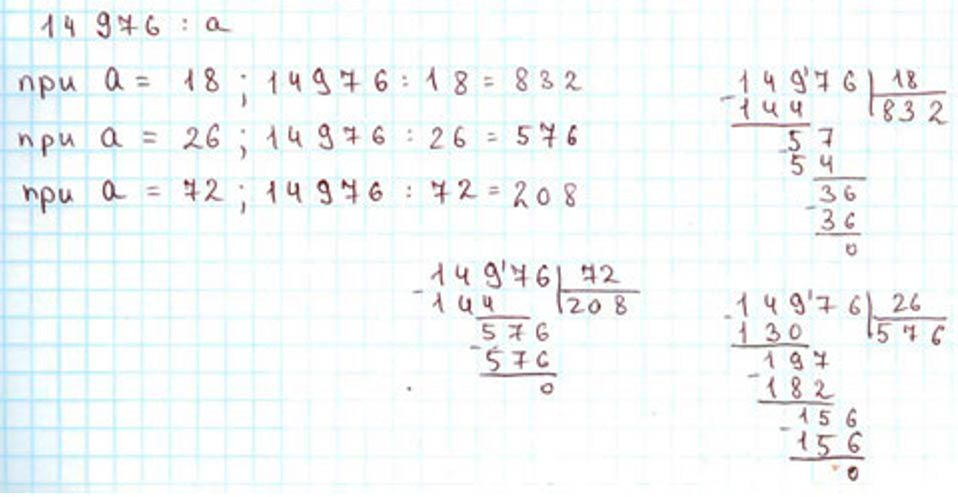 14976 : a
при a = 18 ; 14976 : 18 = 832
при a = 26 ; 14976 : 26 = 576
при a = 72 ; 14976 : 72 = 208
149'76 | 18
-144 | 832
57
-54
36
-36
0
149'76 | 72
-144 | 208
576
-576
0
149'76 | 26
-130 | 576
197
-182
156
-156
0